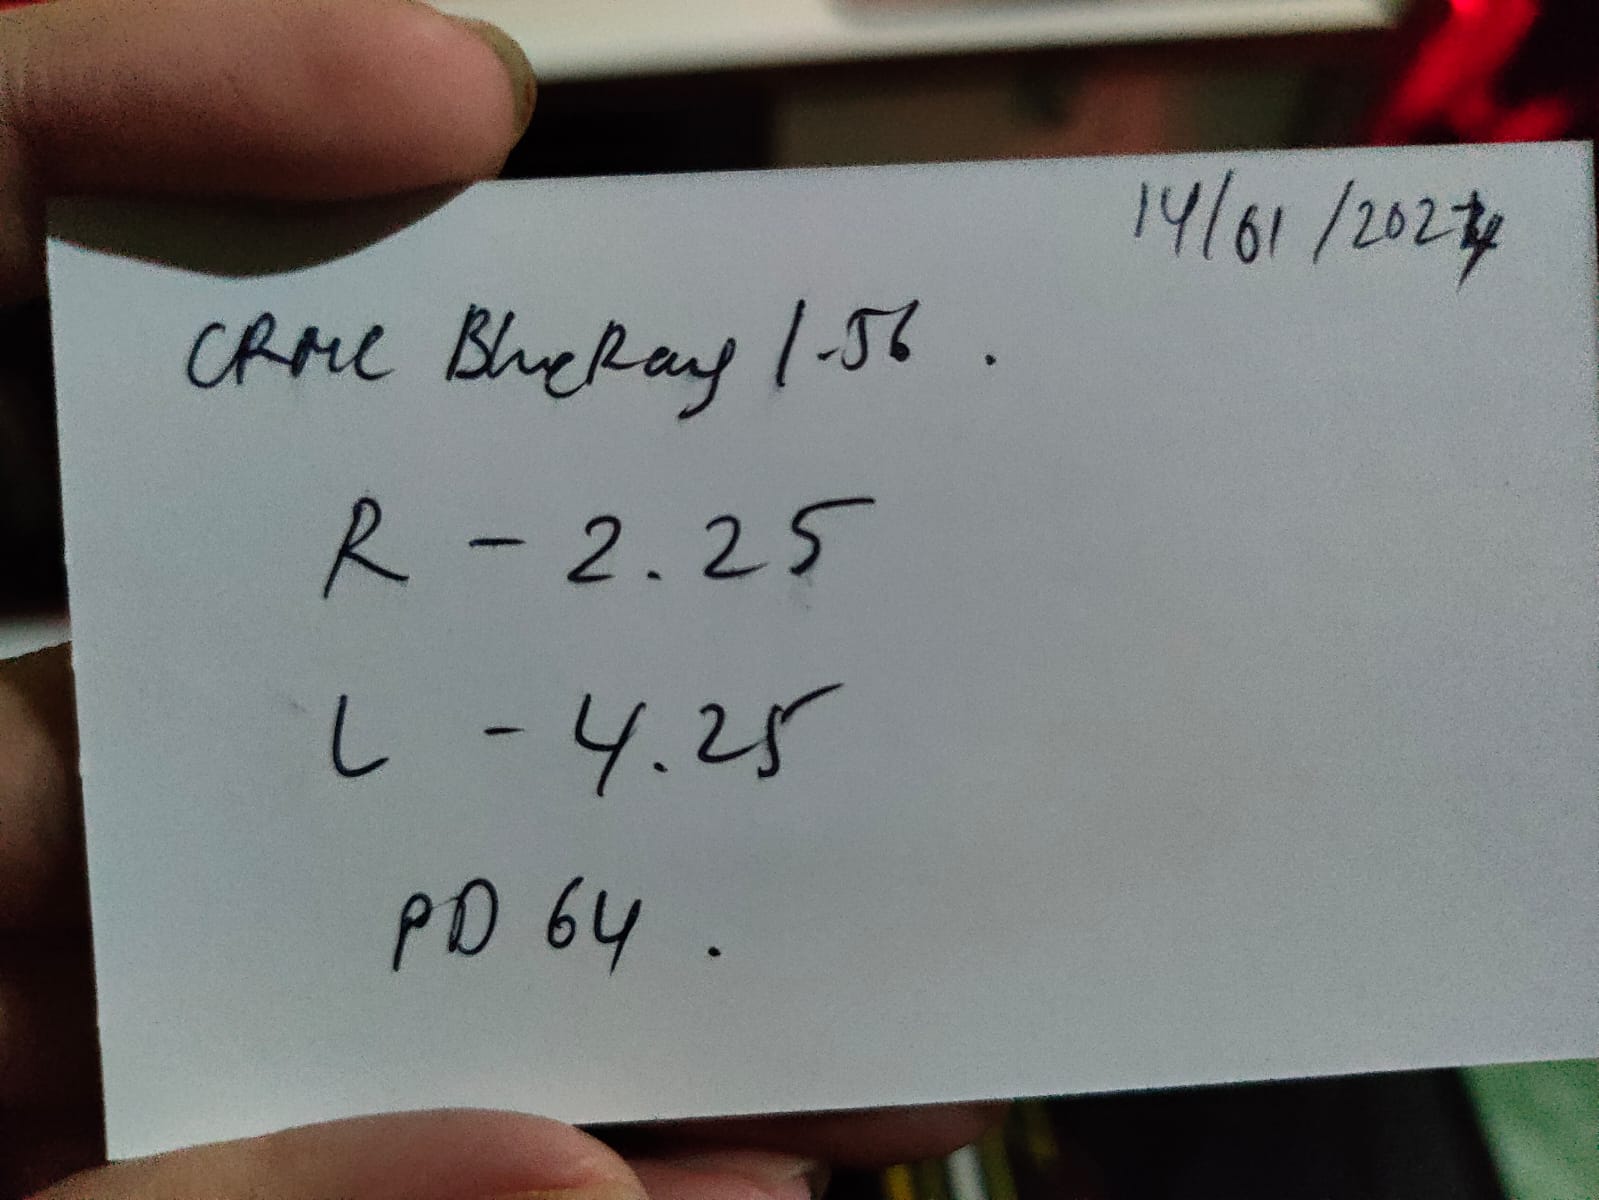 14/01/2024
CRMC BlueRay 1.56.
R - 2.25
L - 4.25
PD 64.